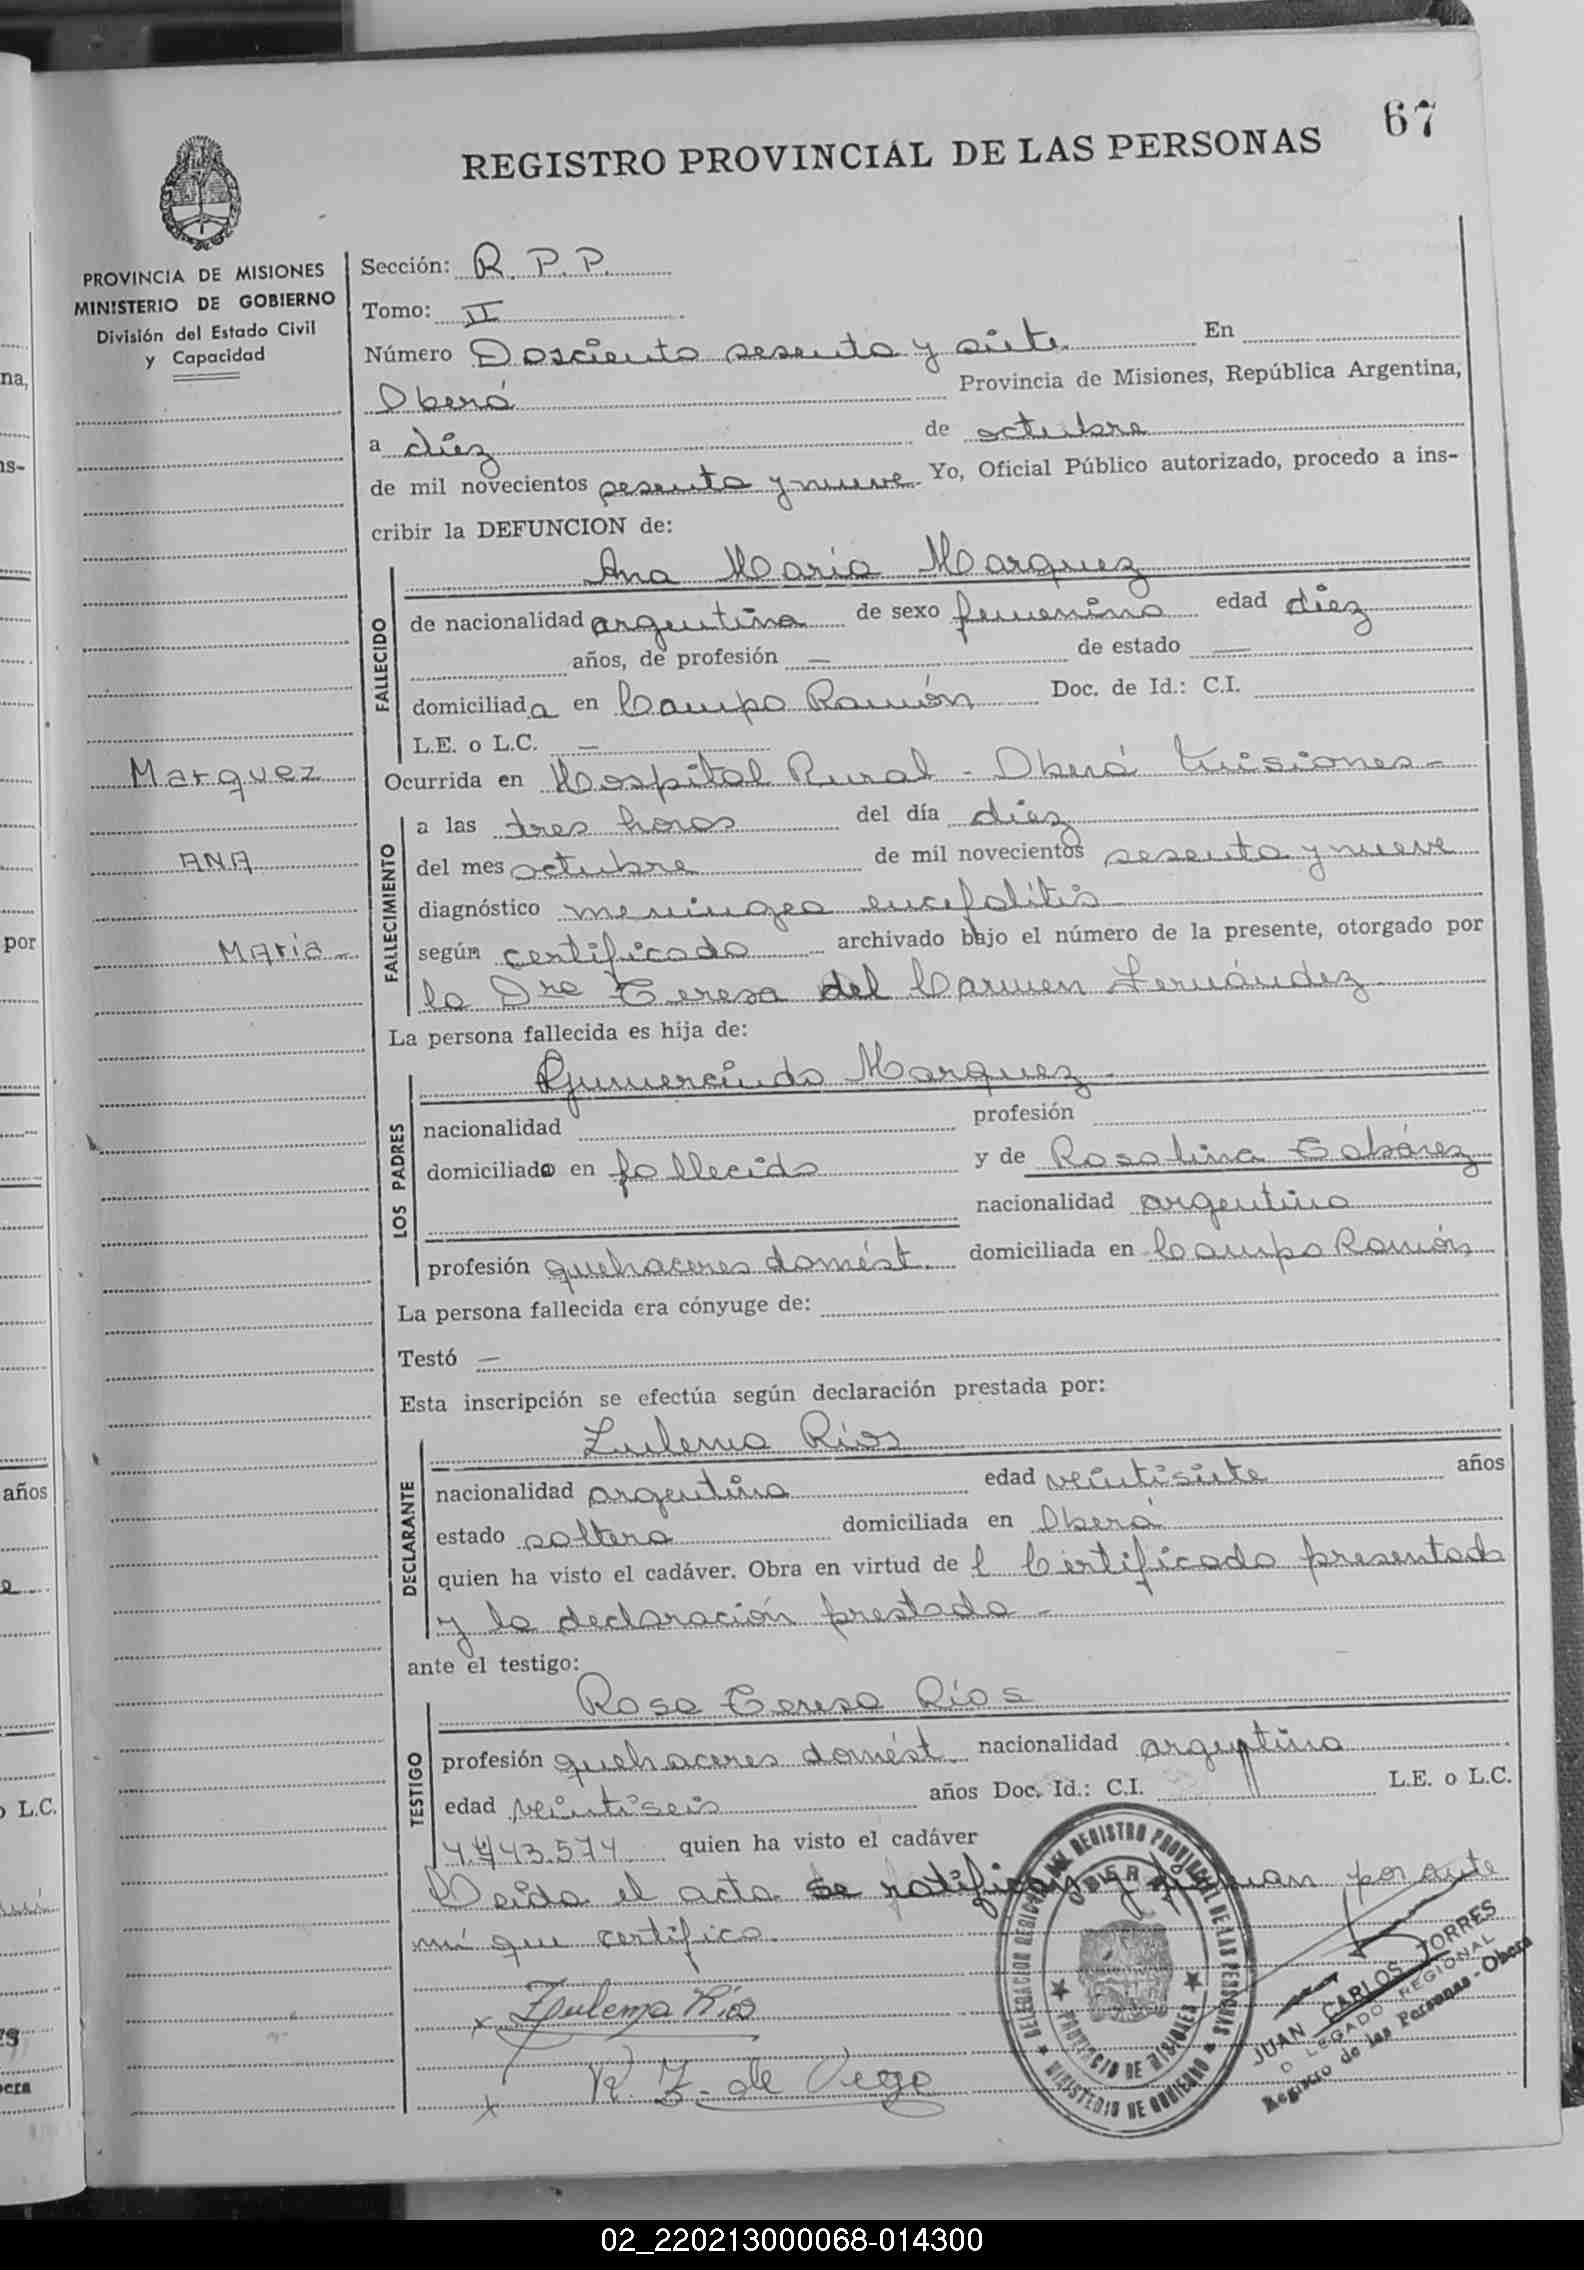 67
REGISTRO PROVINCIAL DE LAS PERSONAS
PROVINCIA DE MISIONES
MINISTERIO DE GOBIERNO
División del Estado Civil
y Capacidad
Sección: R. P. P.
Tomo: II
Número Dosciento sesenta y siete En
Oberá Provincia de Misiones, República Argentina,
a diez de octubre
de mil novecientos sesenta y nueve Yo, Oficial Público autorizado, procedo a ins-
cribir la DEFUNCION de:
Ana Maria Marquez
FALLECIDO
de nacionalidad argentina de sexo femenino edad diez
años, de profesión — de estado —
domiciliada en Campo Ramón Doc. de Id.: C.I.
L.E. o L.C. —
Marquez
ANA
Maria -
Ocurrida en Hospital Rural - Oberá Misiones -
FALLECIMIENTO
a las tres horas del día diez
del mes octubre de mil novecientos sesenta y nueve
diagnóstico meningeo encefalitis
según certificado archivado bajo el número de la presente, otorgado por
la Dra Teresa del Carmen Fernández
La persona fallecida es hija de:
LOS PADRES
Gumercindo Marquez -
nacionalidad profesión
domiciliado en fallecido y de Rosalina Tabárez
nacionalidad argentina
profesión quehaceres domést. domiciliada en Campo Ramón
La persona fallecida era cónyuge de:
Testó —
Esta inscripción se efectúa según declaración prestada por:
DECLARANTE
Zulema Ríos
nacionalidad argentina edad veintisiete años
estado soltera domiciliada en Oberá
quien ha visto el cadáver. Obra en virtud de l Certificado presentado
y la declaración prestada -
ante el testigo:
TESTIGO
Rosa Teresa Ríos
profesión quehaceres domést. nacionalidad argentina
edad veintiseis años Doc. Id.: C.I. L.E. o L.C.
quien ha visto el cadáver
Leida el acta se ratifican y firman por ante
mí que certifico.
x Zulema Ríos
x R. Z. de Vega
DELEGACION REGIONAL DEL REGISTRO PROVINCIAL DE LAS PERSONAS
OBERA
PROVINCIA DE MISIONES
MINISTERIO DE GOBIERNO
JUAN CARLOS TORRES
D LEGADO REGIONAL
Registro de las Personas - Obera
na,
as-
por
años
o L.C.
02_220213000068-014300